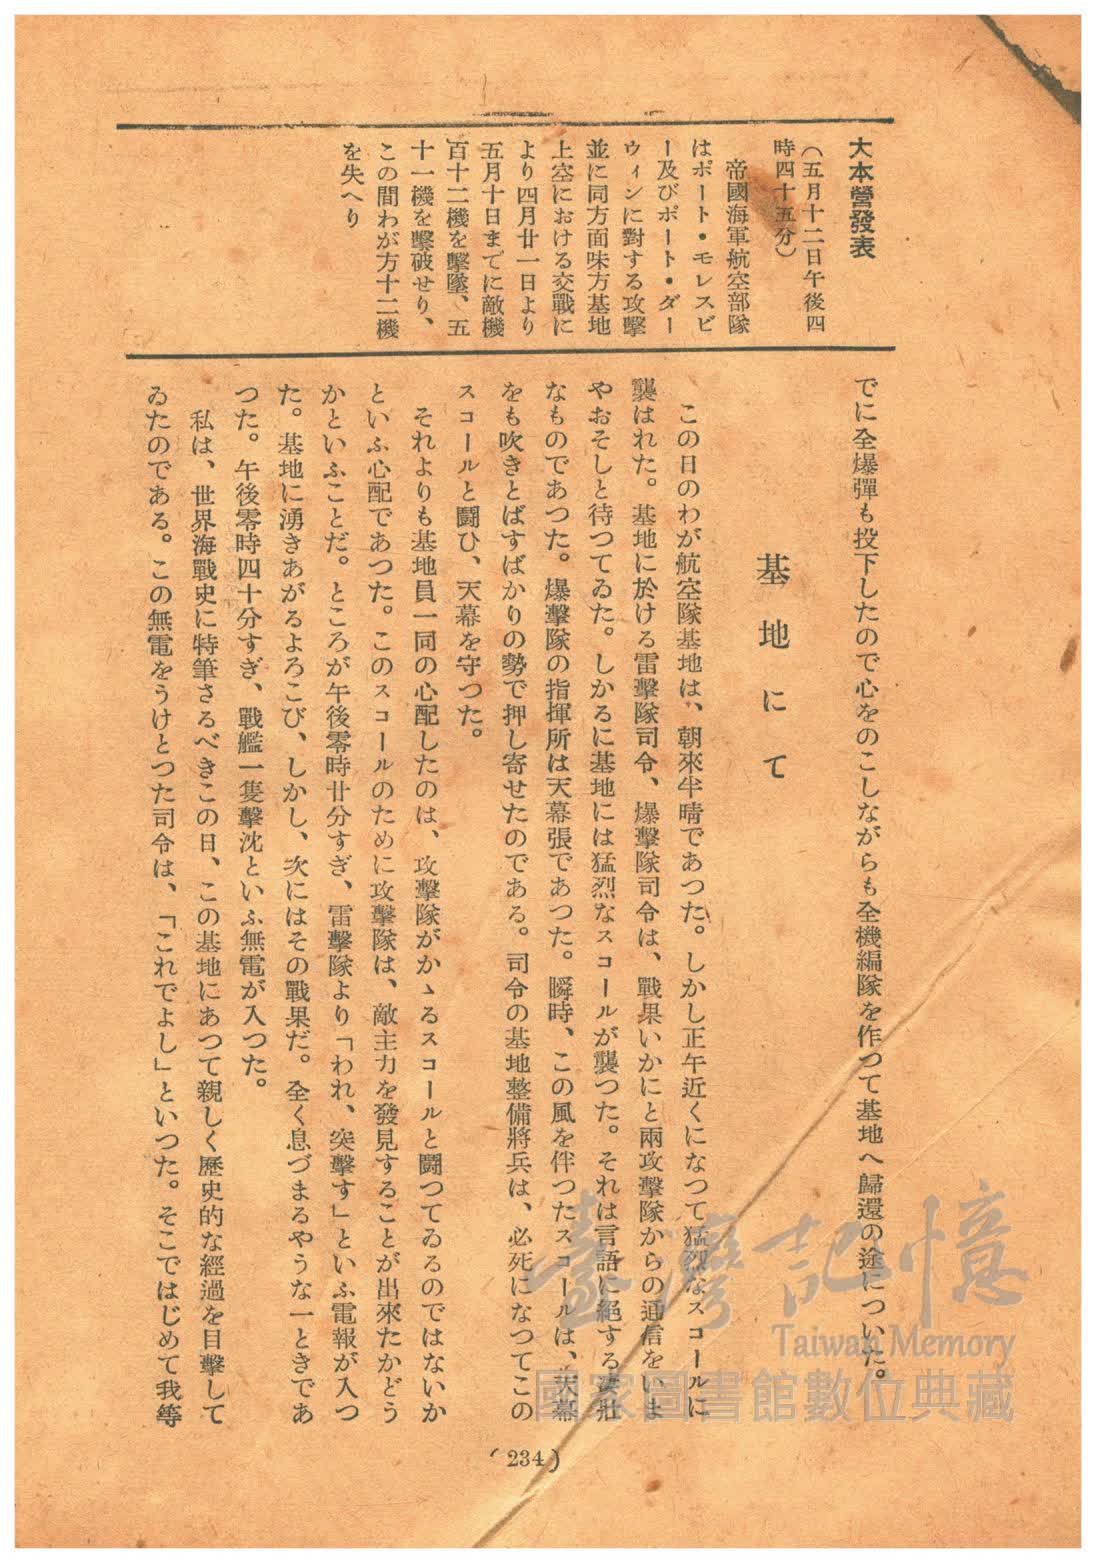 大本營發表
（五月十二日午後四
時四十五分）
帝國海軍航空部隊
はポート・モレスビ
ー及びポート・ダー
ウィンに對する攻擊
並に同方面味方基地
上空における交戰に
より四月廿一日より
五月十日までに敵機
百十二機を擊墜、五
十一機を擊破せり、
この間わが方十二機
を失へり
でに全爆彈も投下したので心をのこしながらも全機編隊を作つて基地へ歸還の途についた。
基地にて
この日のわが航空隊基地は、朝來半晴であつた。しかし正午近くになつて猛烈なスコールに
襲はれた。基地に於ける雷擊隊司令、爆擊隊司令は、戰果いかにと兩攻擊隊からの通信をいま
やおそしと待つてゐた。しかるに基地には猛烈なスコールが襲つた。それは言語に絕する凄壯
なものであつた。爆擊隊の指揮所は天幕張であつた。瞬時、この風を伴つたスコールは、天幕
をも吹きとばすばかりの勢で押し寄せたのである。司令の基地整備將兵は、必死になつてこの
スコールと鬪ひ、天幕を守つた。
それよりも基地員一同の心配したのは、攻擊隊がかゝるスコールと鬪つてゐるのではないか
といふ心配であつた。このスコールのために攻擊隊は、敵主力を發見することが出來たかどう
かといふことだ。ところが午後零時廿分すぎ、雷擊隊より「われ、突擊す」といふ電報が入つ
た。基地に湧きあがるよろこび、しかし、次にはその戰果だ。全く息づまるやうな一ときであ
つた。午後零時四十分すぎ、戰艦一隻擊沈といふ無電が入つた。
私は、世界海戰史に特筆さるべきこの日、この基地にあつて親しく歷史的な經過を目擊して
ゐたのである。この無電をうけとつた司令は、「これでよし」といつた。そこではじめて我等
(234)
臺灣記憶
Taiwan Memory
國家圖書館數位典藏